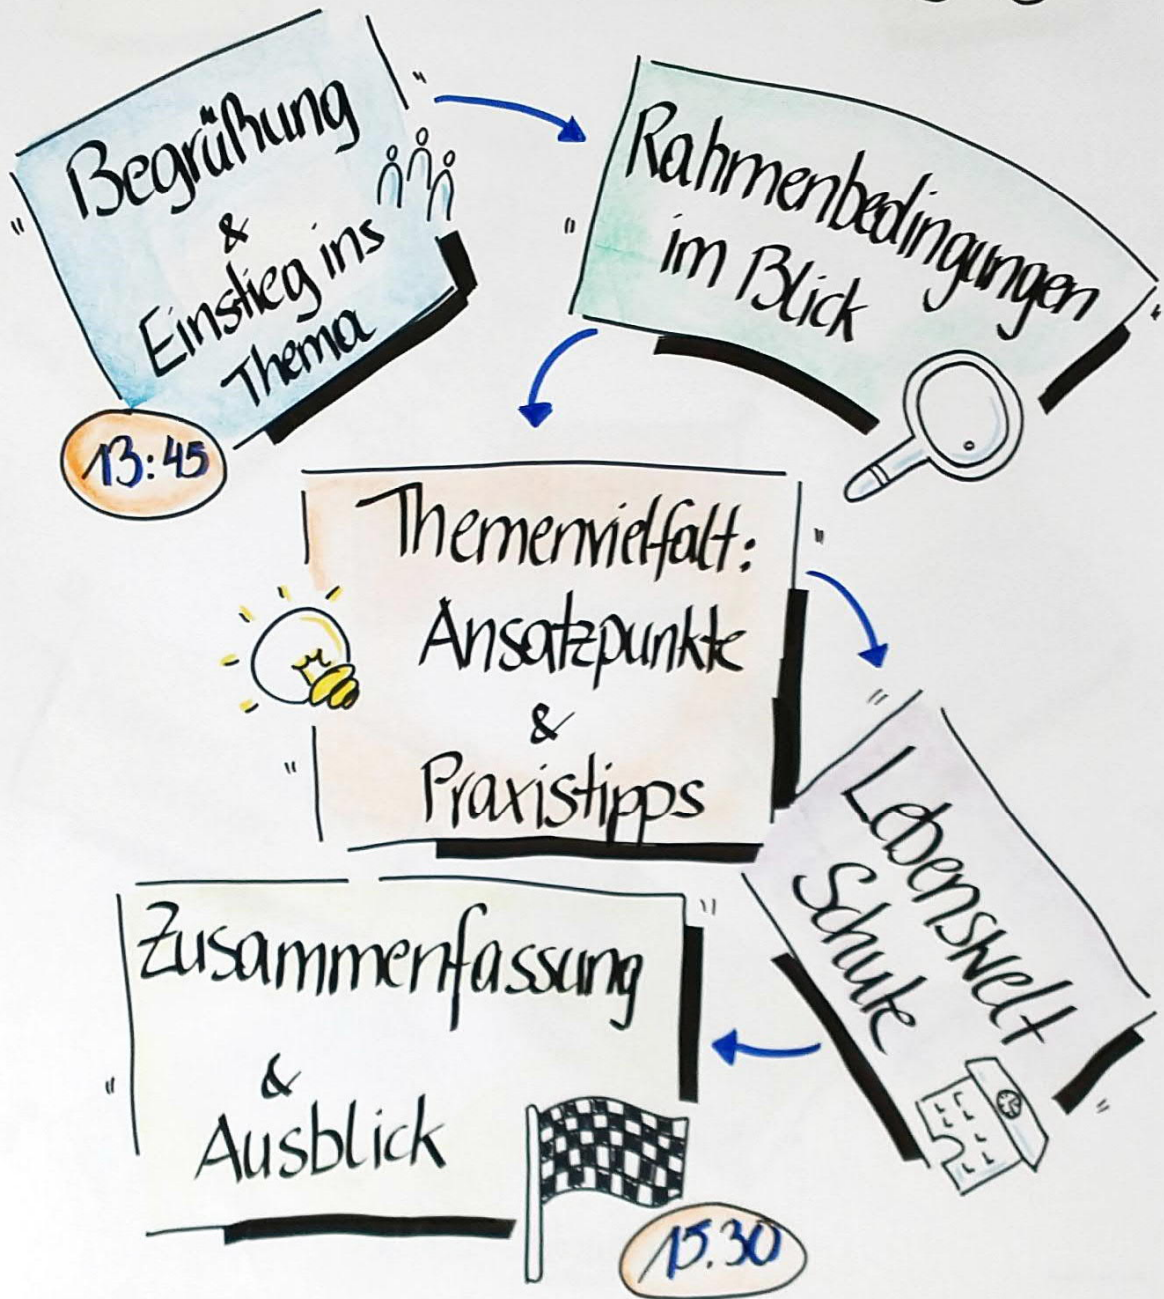 Begrüßung
&
Einstieg ins
Thema
13:45
Rahmenbedingungen
im Blick
Themenvielfalt:
Ansatzpunkte
&
Praxistipps
Lebenswelt
Schule
Zusammenfassung
&
Ausblick
15.30